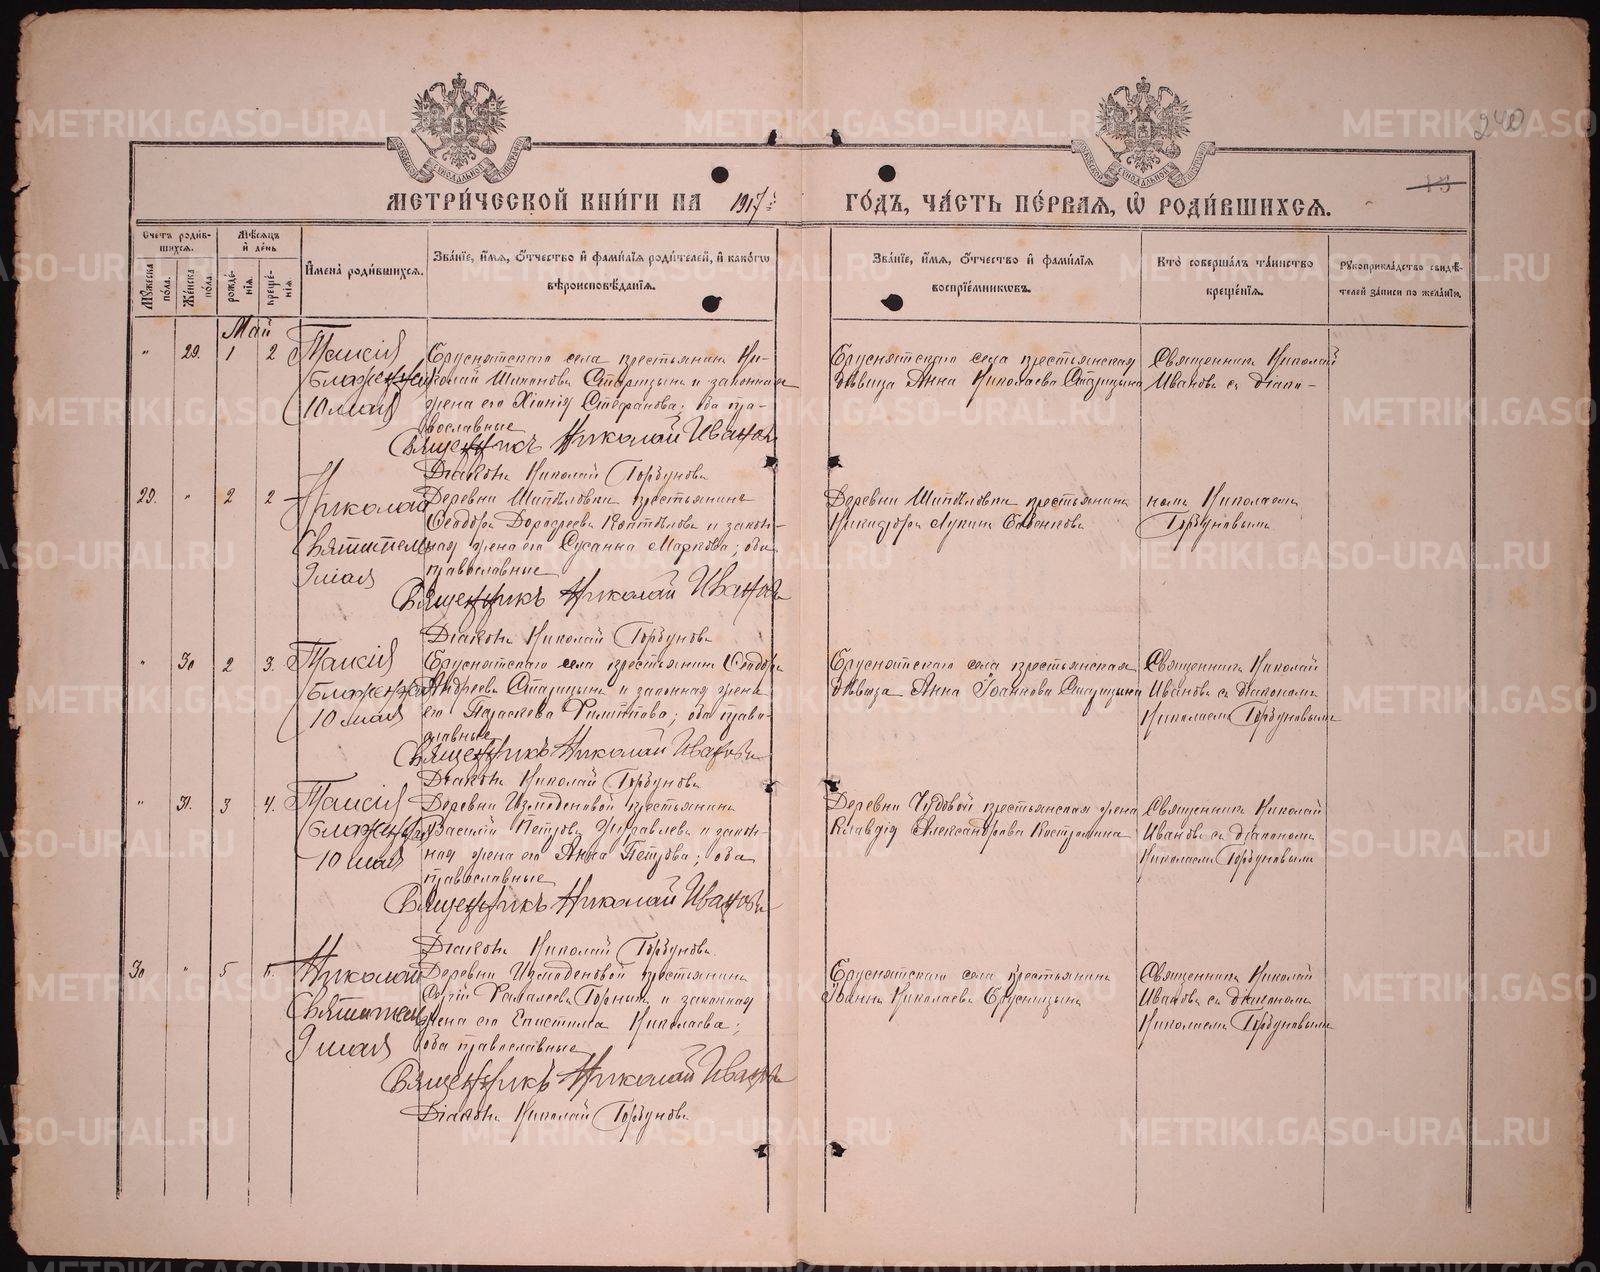 240
13
МЕТРИ́ЧЕСКОЙ КНИ́ГИ НА 1917й ГО́ДЪ, ЧА́СТЬ ПЕ́РВАЯ, Ѡ РОДИ́ВШИХСЯ.
Счетъ роди́вшихся.
Му́жеска по́ла.
Же́нска по́ла.
Мѣ́сяцъ и́ де́нь
рожде́нїя.
креще́нїя.
И҆мена̀ роди́вшихся.
Зва́нїе, и҆́мя, ѻ҆́тчество и҆ фами́лїя роди́телей, и҆ како́гѡ
вѣроисповѣ́данїя.
Зва́нїе, и҆́мя, ѻ҆́тчество и҆ фами́лїя
воспрїе́мникѡвъ.
Кто̀ соверша́лъ та́инство
креще́нїя.
Рукоприкла́дство свидѣ́-
телей за́писи по жела́нїю.
Май
" 29. 1 2
Таисія
блаженная
10 мая
Бруснятскаго села крестьянинъ Ни-
колай Старицынъ и законная
жена его Хіонія Стефанова; оба пра-
вославные
Священникъ Николай Ивановъ
Діаконъ Николай Горбуновъ
Бруснятскаго села крестьянская
дѣвица Анна Николаева Старицына
Священникъ Николай
Ивановъ съ діако-
номъ Николаемъ
Горбуновымъ
29. " 2 2
Николай
Святитель
9 мая
Деревни Шипѣловки крестьянинъ
Ѳеодоръ Дороѳеевъ Коптѣловъ и закон-
ная жена его Сусанна Маркова; оба
православные
Священникъ Николай Ивановъ
Діаконъ Николай Горбуновъ
Деревни Шипѣловки крестьянинъ
Никифоръ Лукинъ
" 30 2 3.
Таисія
блаженная
10 мая
Бруснятскаго села крестьянинъ Ѳеодоръ
Андреевъ Старицынъ и законная жена
его Параскева Филиппова; оба право-
славные
Священникъ Николай Ивановъ
Діаконъ Николай Горбуновъ
Бруснятскаго села крестьянская
дѣвица Анна Іоаннова Старицына
Священникъ Николай
Ивановъ съ діакономъ
Николаемъ Горбуновымъ
" 31. 3 4.
Таисія
блаженная
10 мая
Деревни Измоденовой крестьянинъ
Василій Петровъ Журавлевъ и закон-
ная жена его Анна Петрова; оба
православные
Священникъ Николай Ивановъ
Діаконъ Николай Горбуновъ
Деревни Чудовой крестьянская жена
Клавдія Александрова Костромина
Священникъ Николай
Ивановъ съ діакономъ
Николаемъ Горбуновымъ
30 " 5 6.
Николай
Святитель
9 мая
Деревни Измоденовой крестьянинъ
Сергій Горныхъ и законная
жена его Епистимія Николаева;
оба православные
Священникъ Николай Ивановъ
Діаконъ Николай Горбуновъ
Бруснятскаго села крестьянинъ
Іоаннъ Николаевъ Брусницынъ
Священникъ Николай
Ивановъ съ діакономъ
Николаемъ Горбуновымъ
METRIKI.GASO-URAL.RU